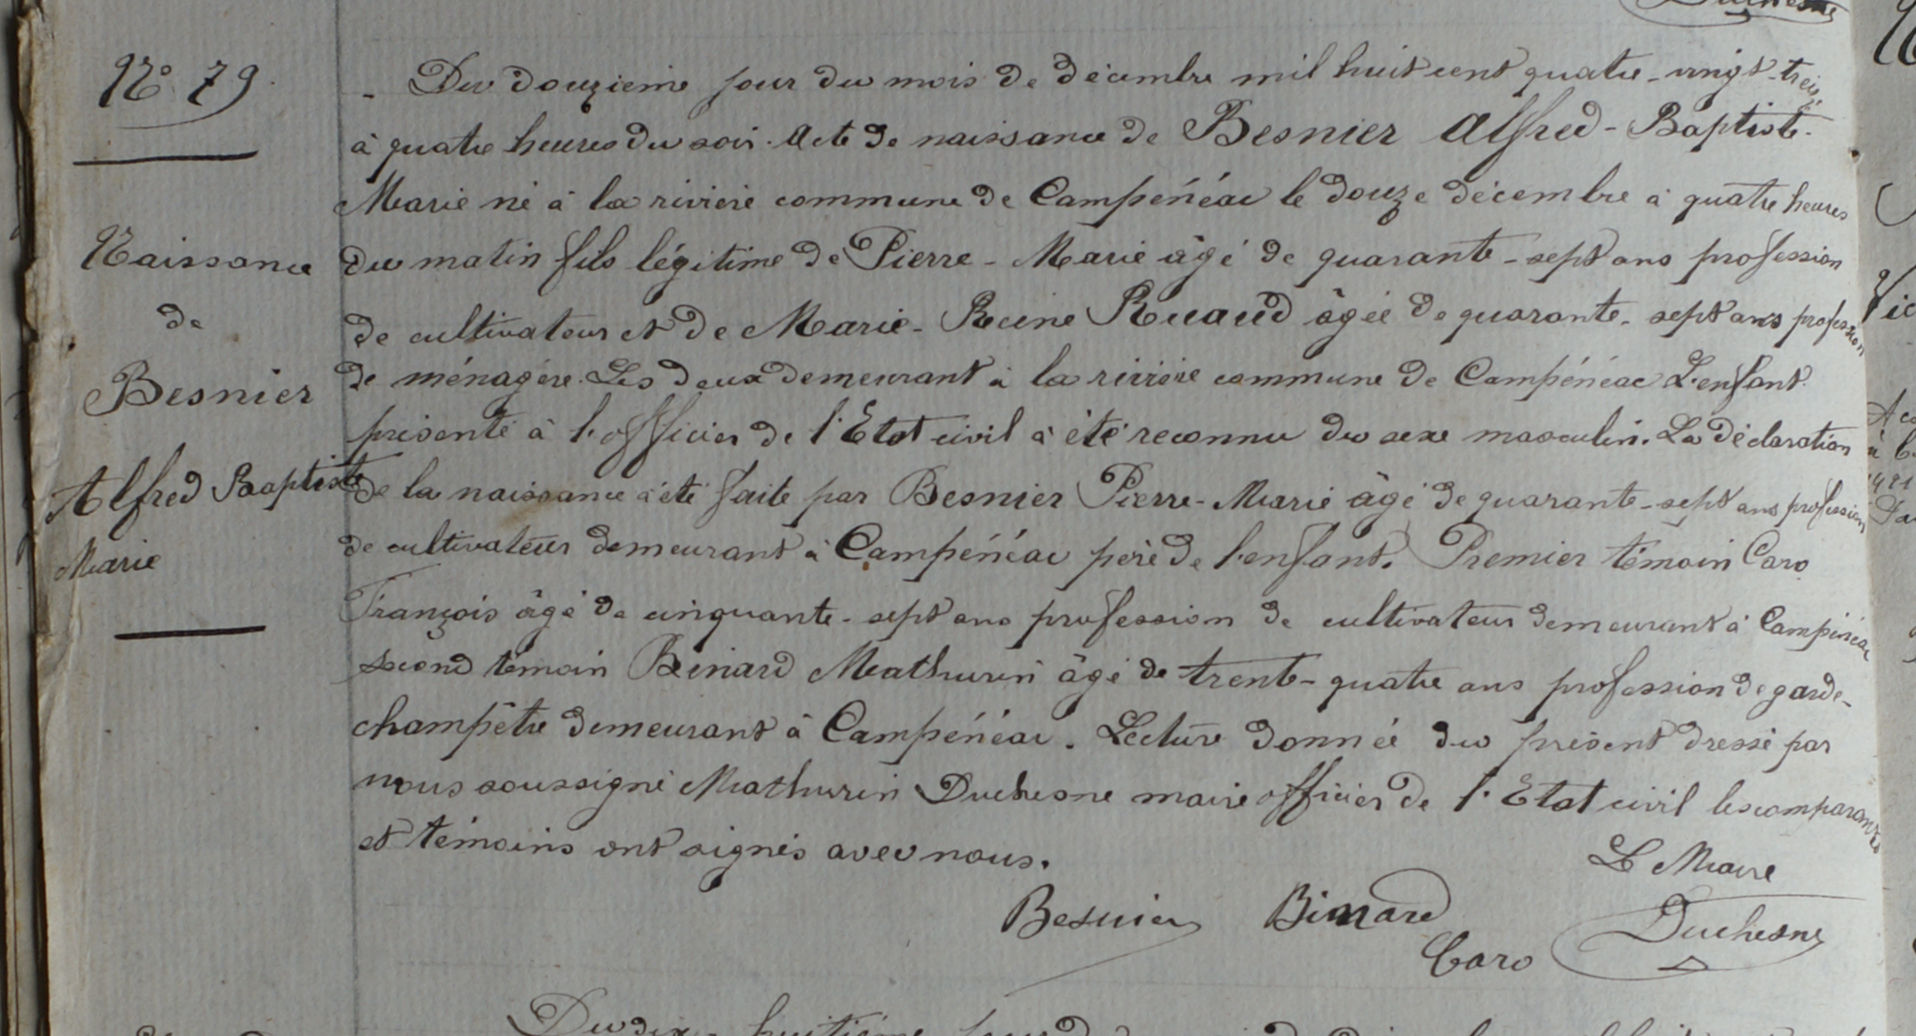 Duchesne
N° 79
Du douzième jour du mois de décembre mil huit cent quatre-vingt-treize
à quatre heures du soir. Acte de naissance de Besnier Alfred-Baptiste-
Marie né à la rivière commune de Campénéac le douze décembre à quatre heures
du matin fils légitime de Pierre-Marie âgé de quarante-sept ans profession
de cultivateur et de Marie-Reine Ruaud âgée de quarante-sept ans profession
de ménagère. Les deux demeurant à la rivière commune de Campénéac L'enfant
présenté à l'officier de l'Etat civil a été reconnu du sexe masculin. La déclaration
de la naissance a été faite par Besnier Pierre-Marie âgé de quarante-sept ans profession
de cultivateur demeurant à Campénéac père de l'enfant. Premier témoin Caro
François âgé de cinquante-sept ans profession de cultivateur demeurant à Campénéac
second témoin Binard Mathurin âgé de trente-quatre ans profession de garde-
champêtre demeurant à Campénéac. Lecture donnée du présent dressé par
nous soussigné Mathurin Duchesne maire officier de l'Etat civil les comparants
et témoins ont signés avec nous.
Naissance
de
Besnier
Alfred Baptiste
Marie
Le Maire
Besnier Binard
Caro Duchesne